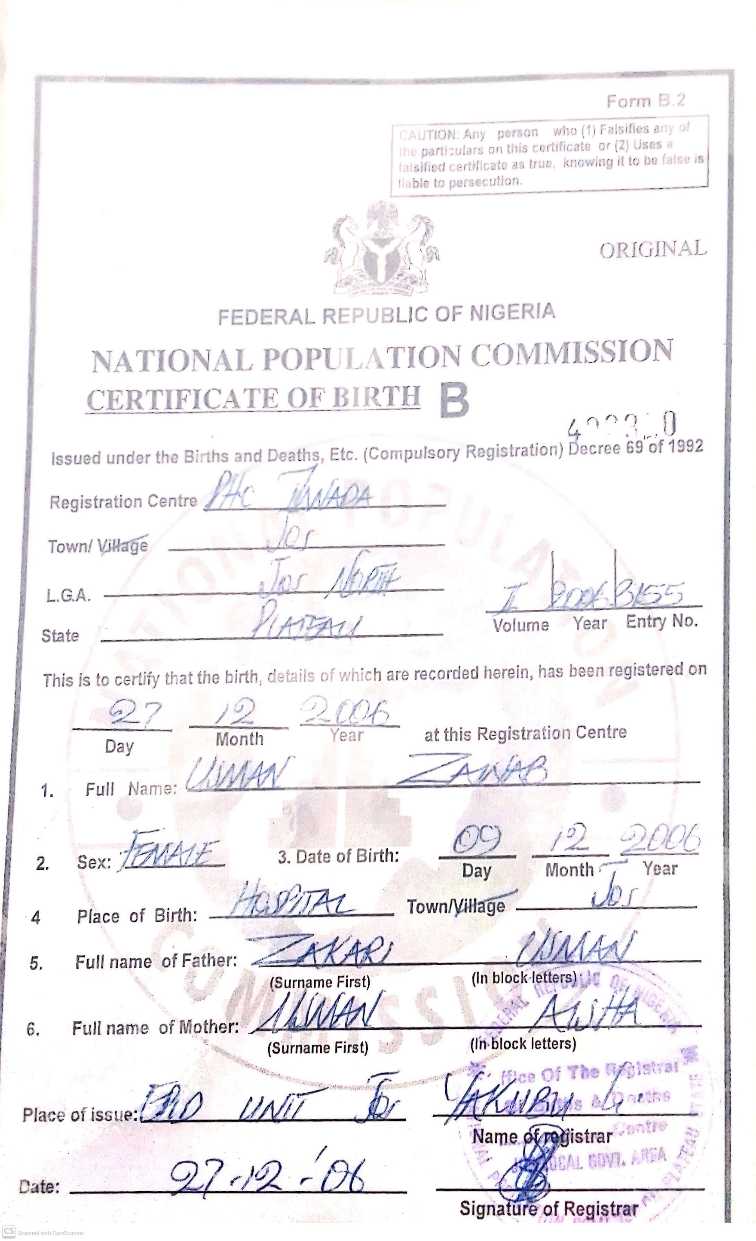 Form B.2
CAUTION: Any person who (1) Falsifies any of
the particulars on this certificate or (2) Uses a
falsified certificate as true, knowing it to be false is
liable to persecution.
ORIGINAL
FEDERAL REPUBLIC OF NIGERIA
NATIONAL POPULATION COMMISSION
CERTIFICATE OF BIRTH B
Issued under the Births and Deaths, Etc. (Compulsory Registration) Decree 69 of 1992
Registration Centre PHC
Town/ Village Jos
L.G.A. Jos NORTH
State PLATEAU
I 2006 3155
Volume Year Entry No.
This is to certify that the birth, details of which are recorded herein, has been registered on
27 12 2006 at this Registration Centre
Day Month Year
1. Full Name: USMAN ZAINAB
2. Sex: FEMALE 3. Date of Birth: 09 12 2006
Day Month Year
4 Place of Birth: HOSPITAL Town/Village Jos
5. Full name of Father: ZAKARI USMAN
(Surname First) (In block letters)
6. Full name of Mother: USMAN AISHA
(Surname First) (In block letters)
Place of issue: UNIT Jos YAKUBU G
Name of registrar
Date: 27-12-'06
Signature of Registrar
NATIONAL POPULATION COMMISSION
FEDERAL REPUBLIC OF NIGERIA
Office Of The Registrar
Births & Deaths
Centre
LOCAL GOVT. AREA
PLATEAU STATE
CS Scanned with CamScanner